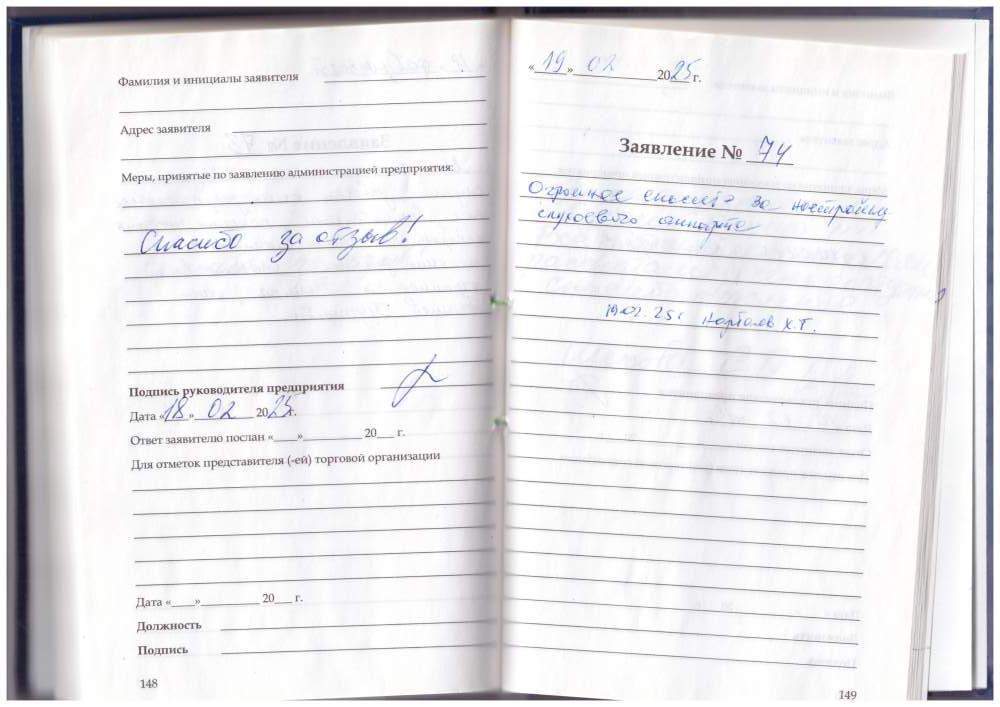 Фамилия и инициалы заявителя
Адрес заявителя
Меры, принятые по заявлению администрацией предприятия:
Спасибо за отзыв!
Подпись руководителя предприятия
Дата «18» 02 2025г.
Ответ заявителю послан «____»__________ 20___ г.
Для отметок представителя (-ей) торговой организации
Дата «____»__________ 20___ г.
Должность
Подпись
148
«19» 02 2025 г.
Заявление № 74
Огромное спасибо за настройку
слухового аппарата
19.02.25г Х.Т.
149